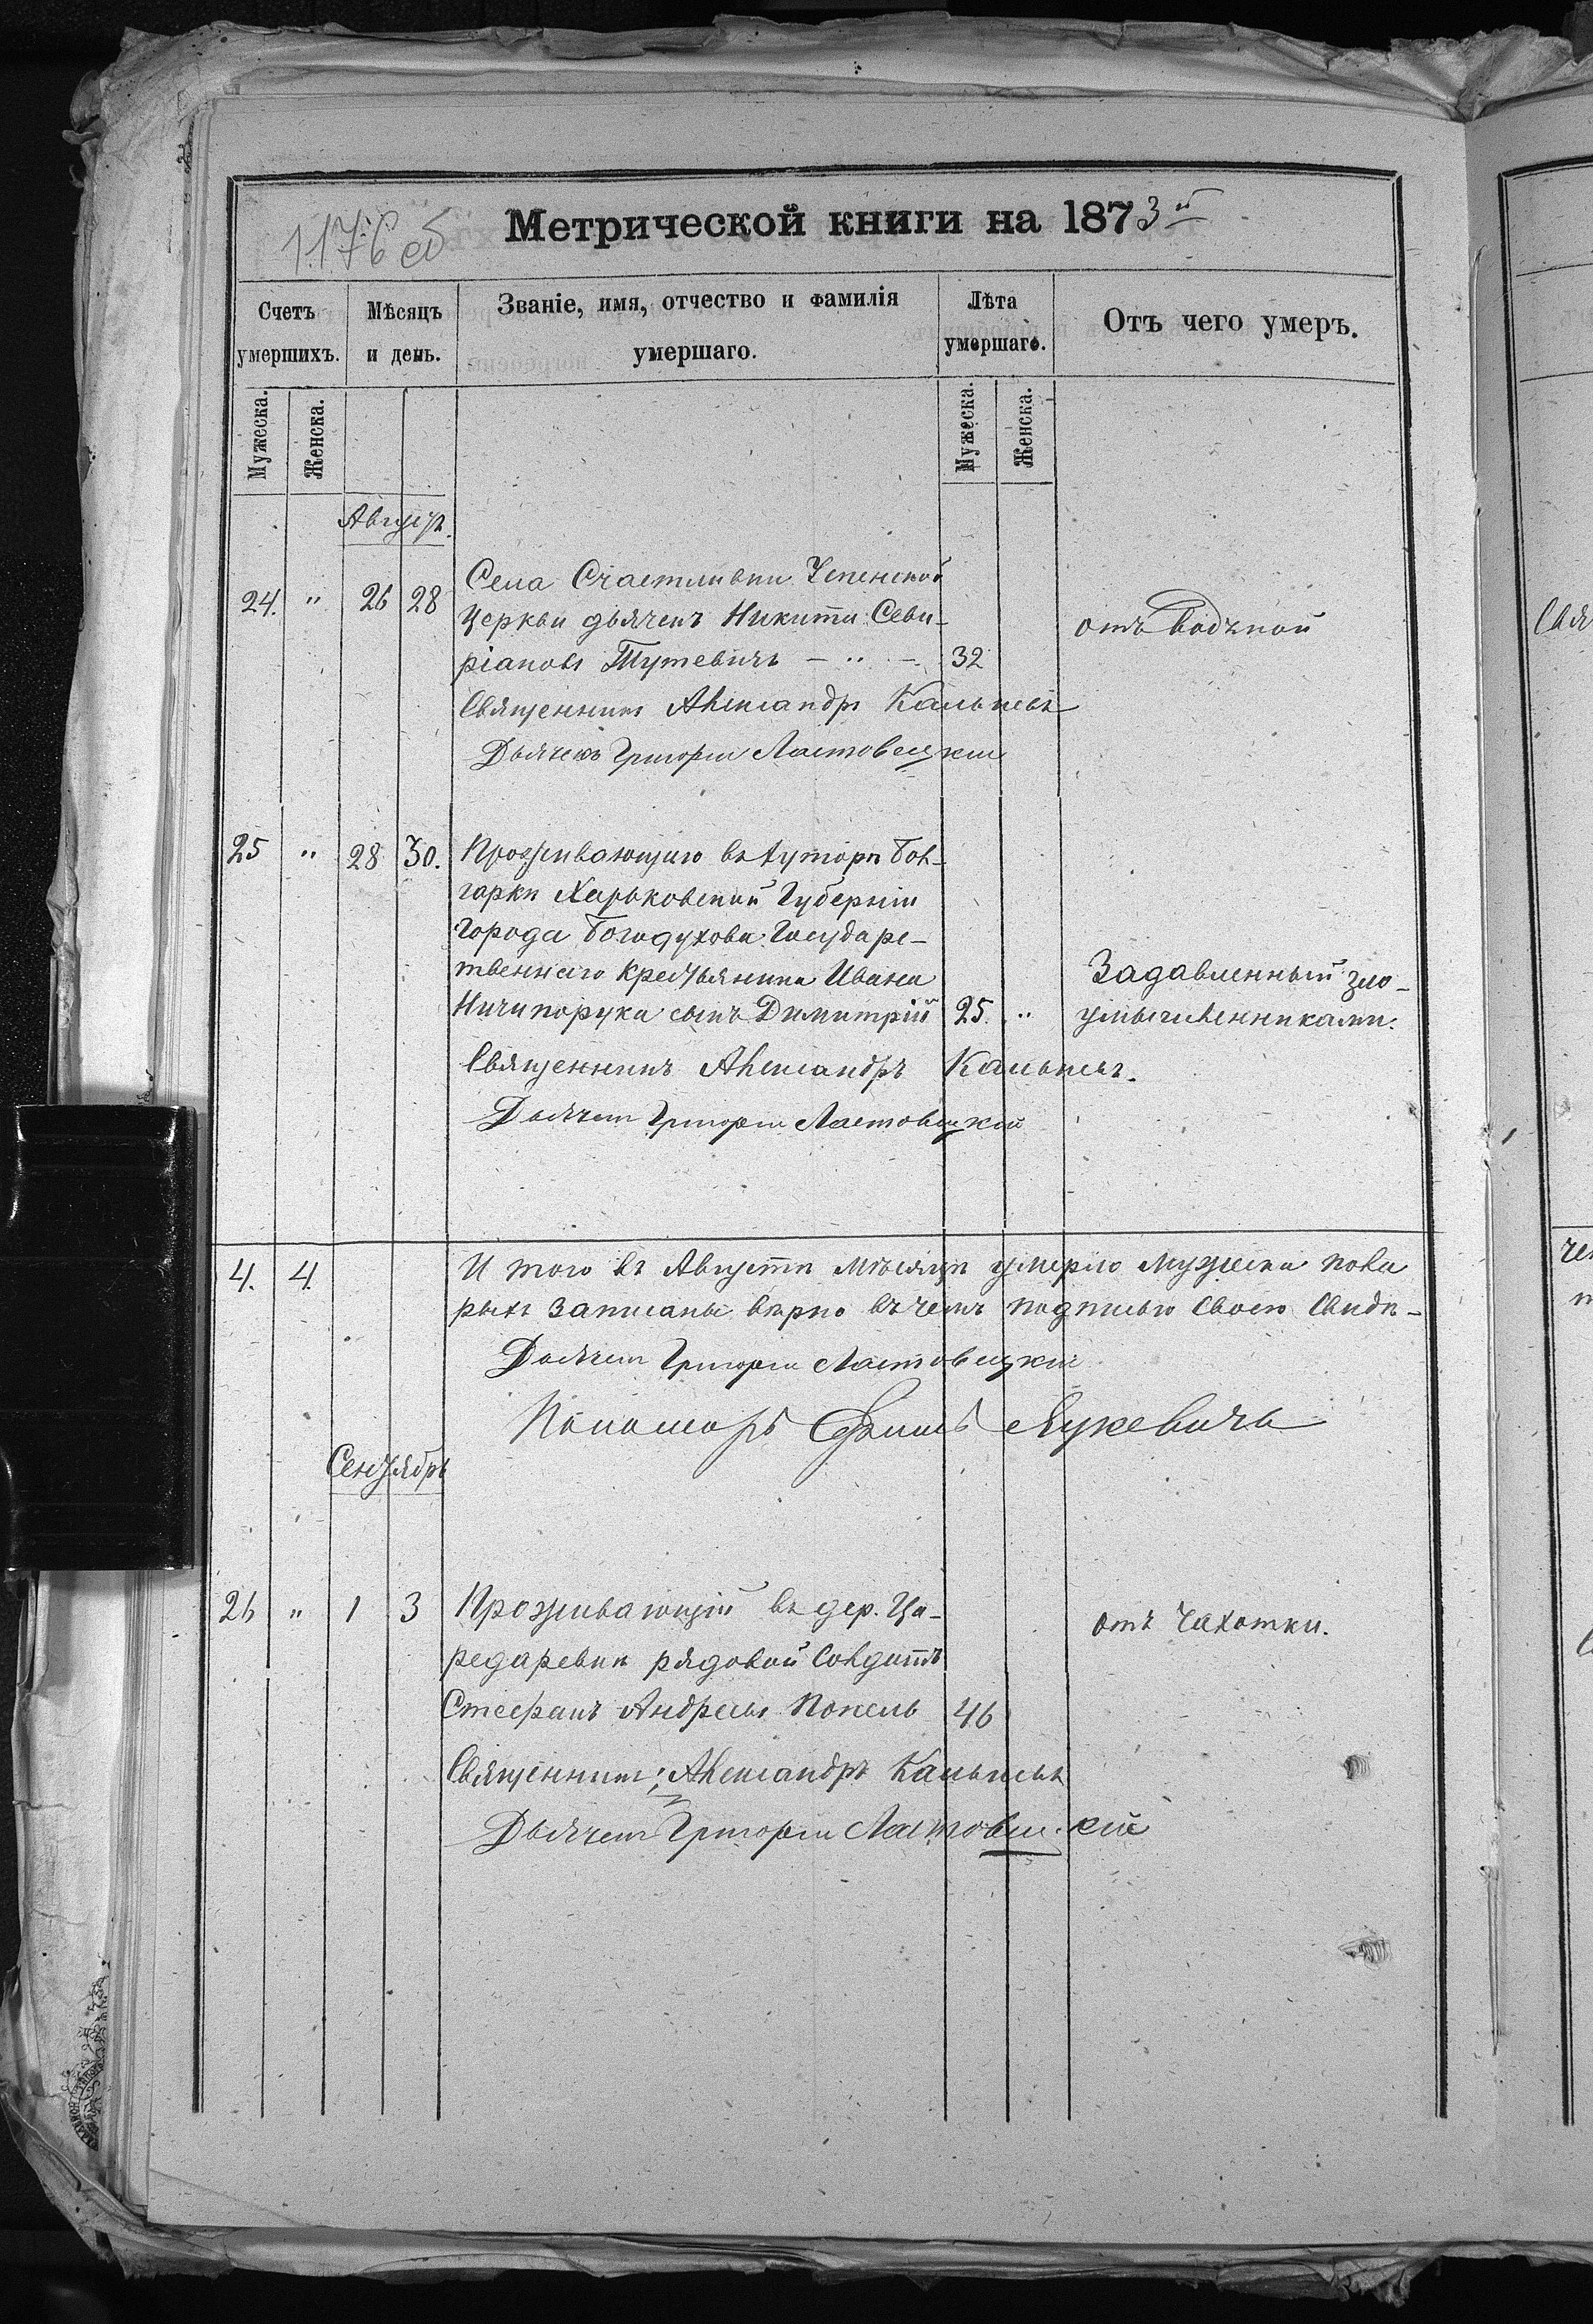 1176 об
Метрической книги на 1873й
Счетъ умершихъ.
Мѣсяцъ и день.
Званіе, имя, отчество и фамилія умершаго.
Лѣта умершаго.
Отъ чего умеръ.
Мужеска.
Женска.
Мужеска.
Женска.
Августъ.
24. " 26 28 Села Счастливки Успенской
Церкви дьячекъ Никита Севи-
ріановъ Тутевичъ — " — 32
отъ водяной
Священникъ Александръ
Дьячекъ Григорій Ластовецкій
25 " 28 30. Проживающаго въ хуторѣ Бол-
гарки Харьковской Губерніи
города Богодухова Государс-
твеннаго крестьянина Ивана
Ничипорука сынъ Димитрій 25. "
Задавленный зло-
умышленниками.
Священникъ Александръ
Дьячекъ Григорій Ластовецкій
4. 4. И того въ Августѣ мѣсяцѣ умерло мужеска пола
рыхъ записаны вѣрно въ чемъ подписью своею свидѣ-
Дьячекъ Григорій Ластовецкій
Пономарь Лукевичъ
Сентябрь
26 " 1 3 Проживающій въ дер. Ца-
редаревкѣ рядовой Солдатъ
Стефанъ Андреевъ Попель 46
отъ чахотки.
Священникъ: Александръ
Дьячекъ Григорій Ластовецкій